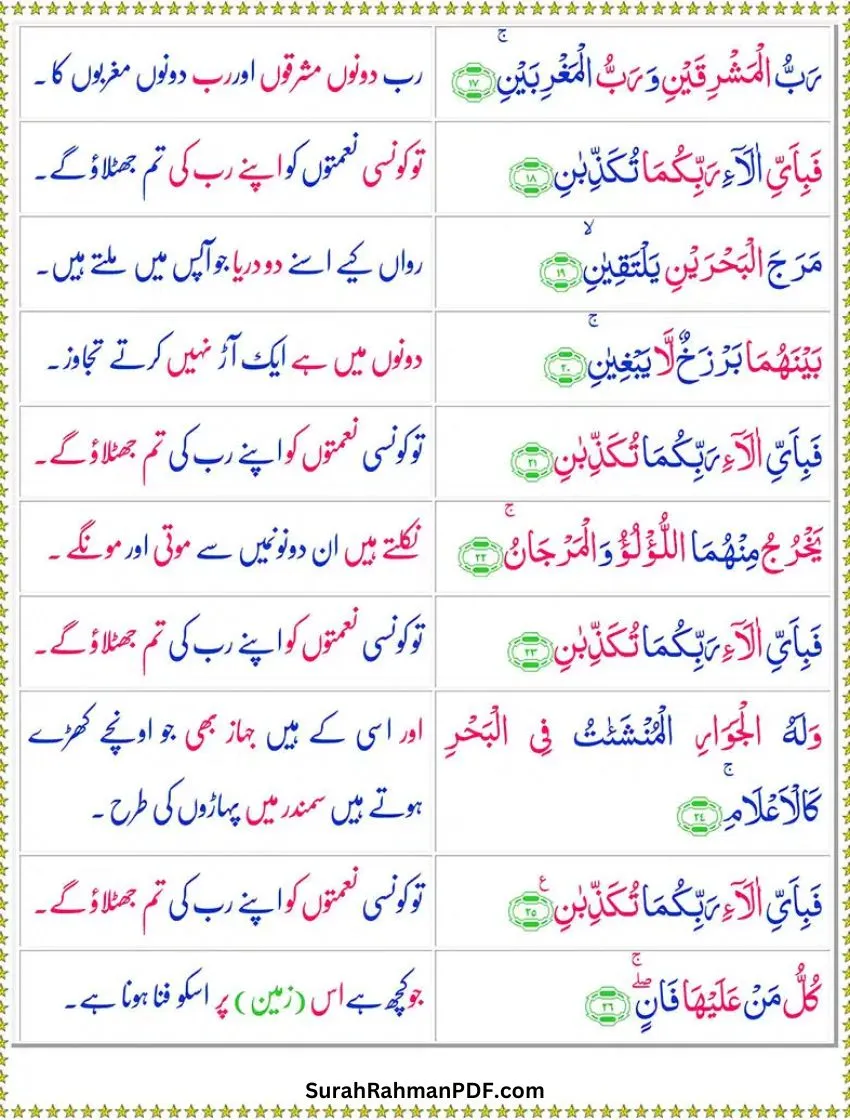 رَبُّ الْمَشْرِقَيْنِ وَرَبُّ الْمَغْرِبَيْنِ ۚ ١٧
رب دونوں مشرقوں اوررب دونوں مغربوں کا۔
فَبِاَيِّ اٰلَآءِ رَبِّكُمَا تُكَذِّبٰنِ ١٨
توکونسی نعمتوں کو اپنے رب کی تم جھٹلاؤ گے۔
مَرَجَ الْبَحْرَيْنِ يَلْتَقِيٰنِ ۙ ١٩
رواں کیے اسنے دو دریا جو آپس میں ملتے ہیں۔
بَيْنَهُمَا بَرْزَخٌ لَّا يَبْغِيٰنِ ۚ ٢٠
دونوں میں ہے ایک آڑ نہیں کرتے تجاوز۔
فَبِاَيِّ اٰلَآءِ رَبِّكُمَا تُكَذِّبٰنِ ٢١
توکونسی نعمتوں کو اپنے رب کی تم جھٹلاؤ گے۔
يَخْرُجُ مِنْهُمَا اللُّؤْلُؤُ وَالْمَرْجَانُ ۚ ٢٢
نکلتے ہیں ان دونونمیں سے موتی اور مونگے ۔
فَبِاَيِّ اٰلَآءِ رَبِّكُمَا تُكَذِّبٰنِ ٢٣
توکونسی نعمتوں کو اپنے رب کی تم جھٹلاؤ گے۔
وَلَهُ الْجَوَارِ الْمُنْشَئٰتُ فِي الْبَحْرِ
كَالْاَعْلَامِ ۚ ٢٤
اور اسی کے ہیں جہاز بھی جو اونچے کھڑے
ہوتے ہیں سمندر میں پہاڑوں کی طرح ۔
فَبِاَيِّ اٰلَآءِ رَبِّكُمَا تُكَذِّبٰنِ ع ٢٥
توکونسی نعمتوں کو اپنے رب کی تم جھٹلاؤ گے۔
كُلُّ مَنْ عَلَيْهَا فَانٍ ۖۚ ٢٦
جوکچھ ہے اس (زمین) پر اسکو فنا ہونا ہے۔
SurahRahmanPDF.com